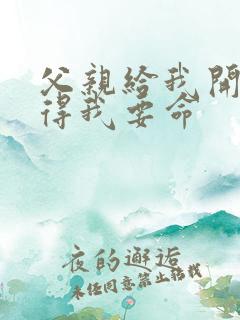 父親給我開
得我要命
夜的邂逅
未经同意禁止转载